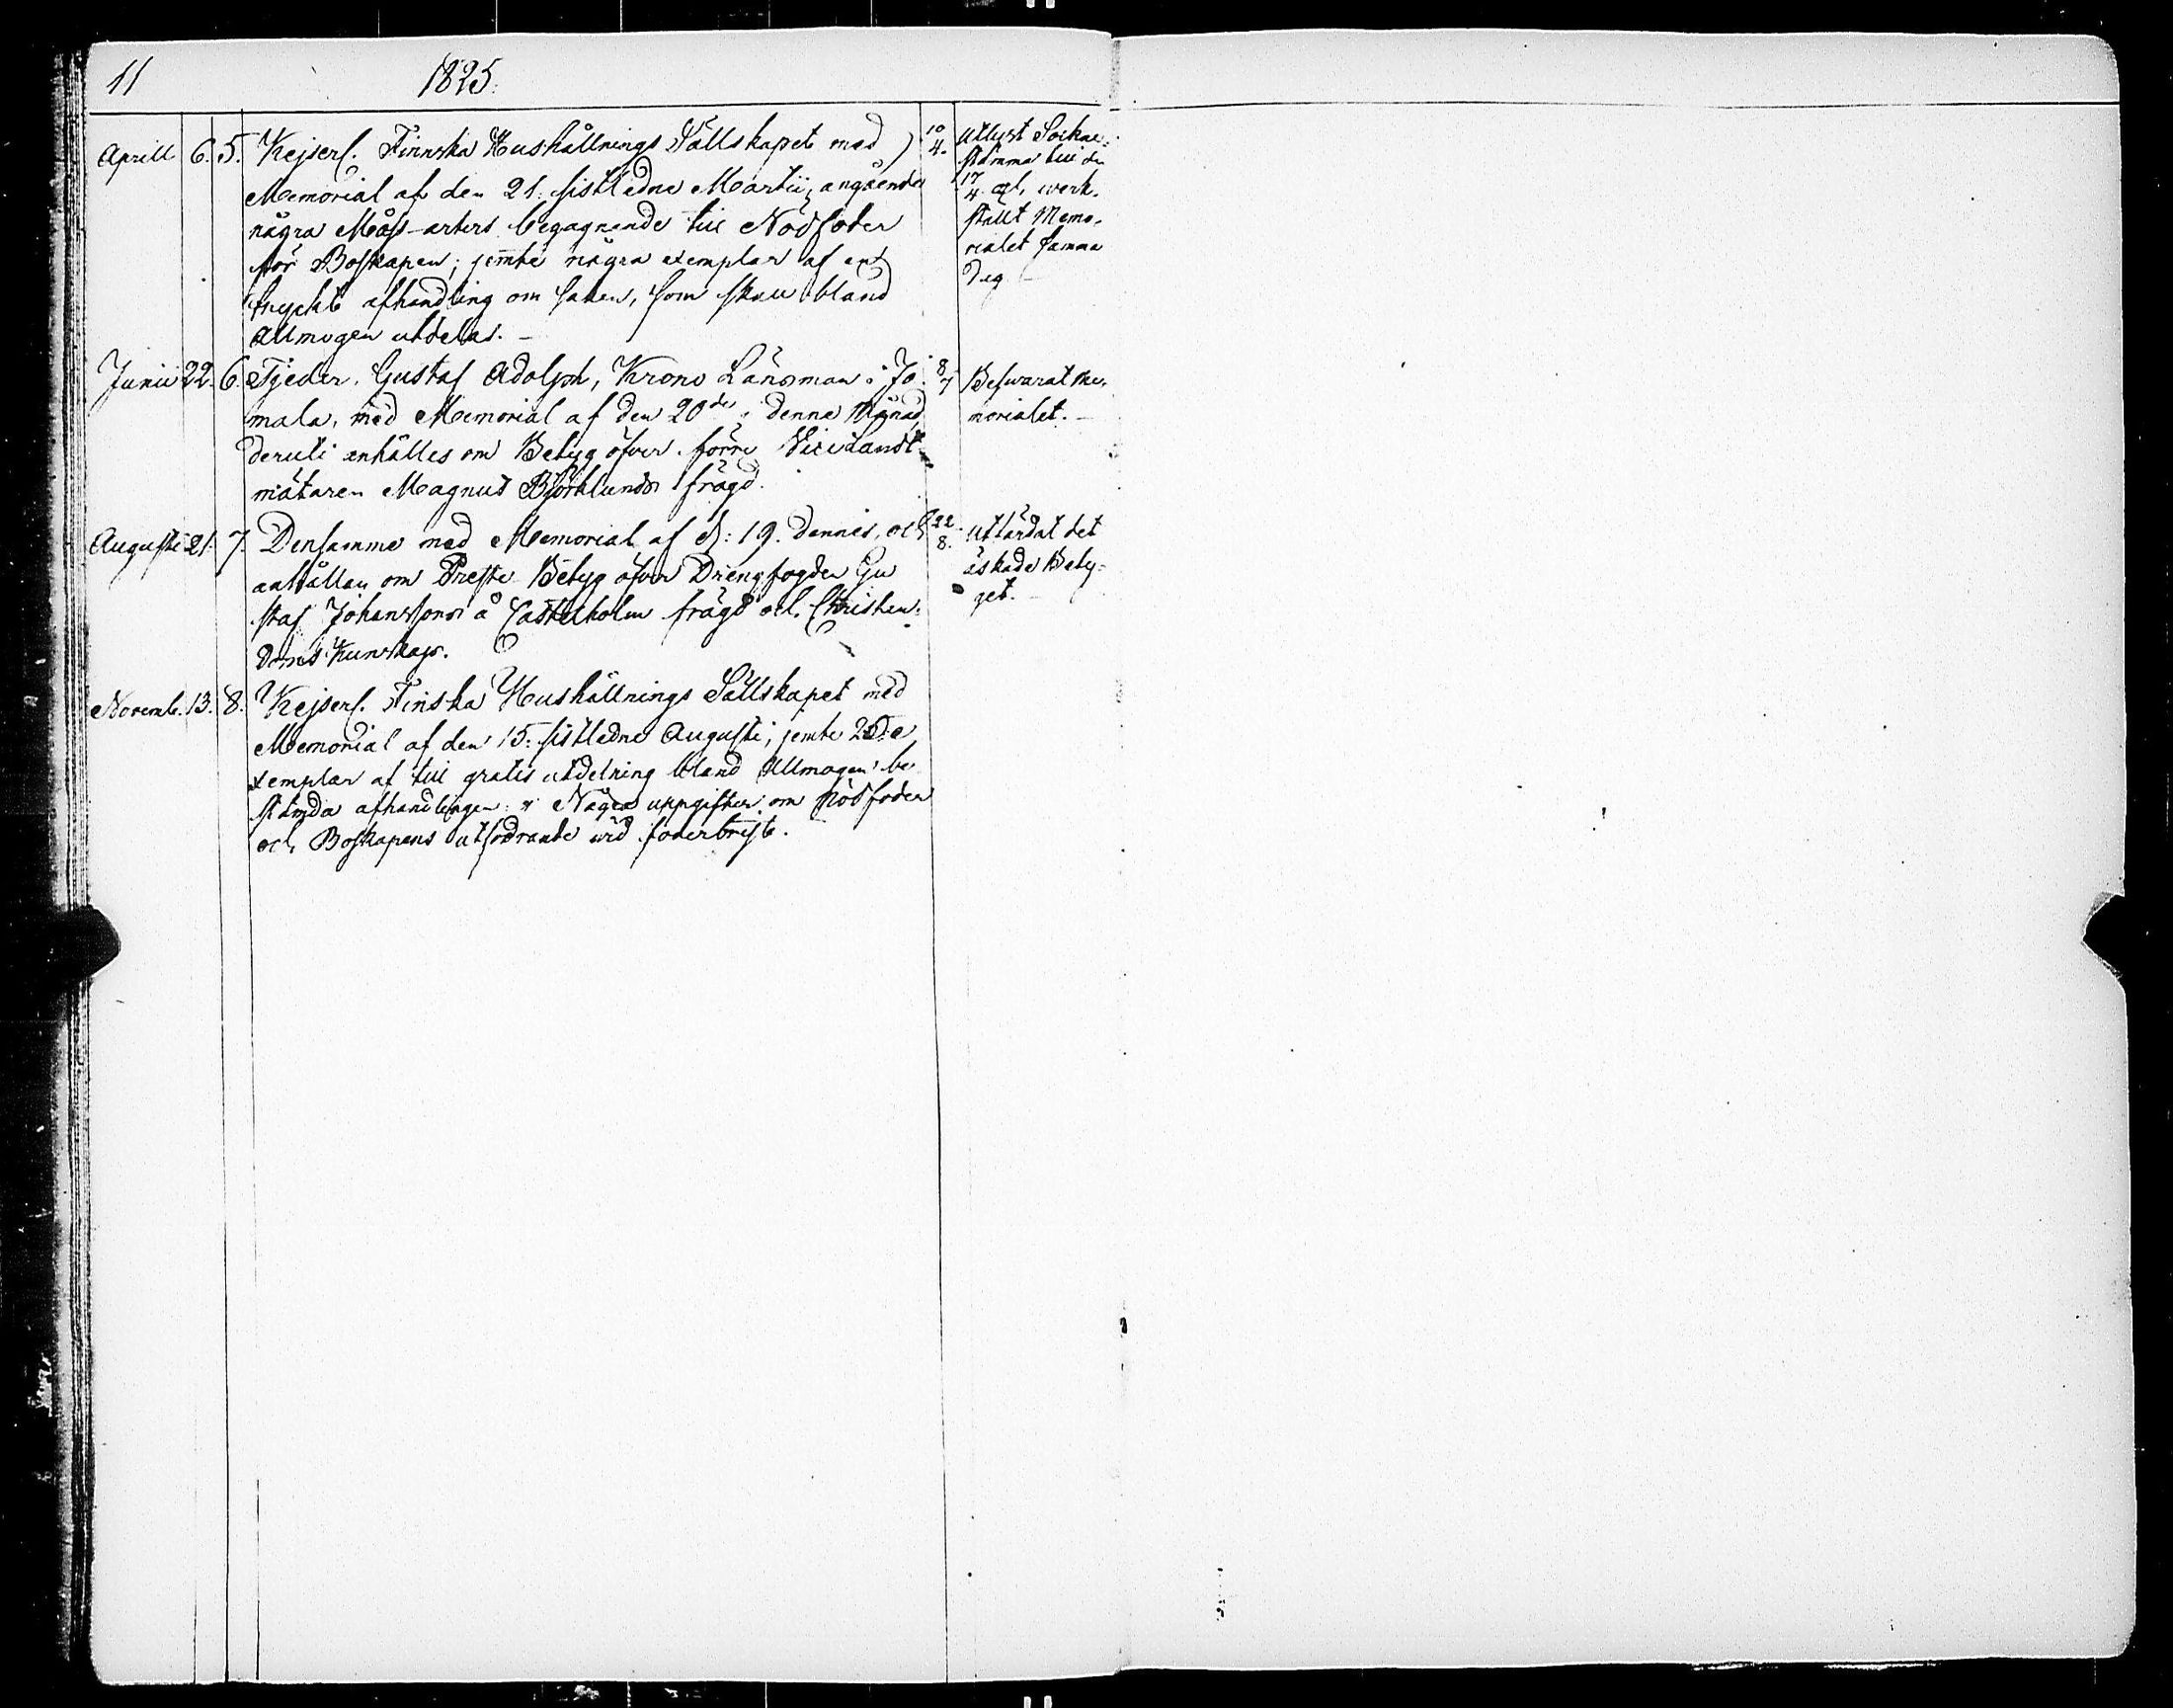 11 1825.
Aprill 6. 5. Kejserl. Finnska Hushållnings Sällskapet med
Memorial af den 21. sistledne Martii, angående
några Måss-arters begagnande till Nödfoder
för Boskapen; jemte några exemplar af en
tryckt afhandling om saken, som skall bland
Allmogen utdelas. —
10/4. Utlyst Sockne-
stämma till den
17/4 och werk-
ställt Memo-
rialet samma
dag —
Junii 22. 6. Tjeder, Gustaf Adolph, Krono Länsman i Jo-
mala, med Memorial af den 20de i denna Månad,
deruti anhålles om Betyg öfver förre Vice Landt-
mätaren Magnus Björklunds frägd.
8/7 Beswarat Me-
morialet. —
Augusti 21. 7. Densamme med Memorial af d: 19. dennes, och
anhållan om Preste Betyg öfver Drengfogden Gu
staf Johanssons å Castelholm frägd och Christen-
doms Kunskap.
22/8. Utfärdat det
äskade Bety-
get. —
Novemb. 13. 8. Kejserl. Finska Hushållnings Sällskapet med
Memorial af den 15: sistledne Augusti, jemte 25 e
xemplar af till gratis utdelning bland Allmogen be
stämda afhandlingen: Några uppgifter om Nödfoder
och Boskapens utfodrande wid foderbrist.